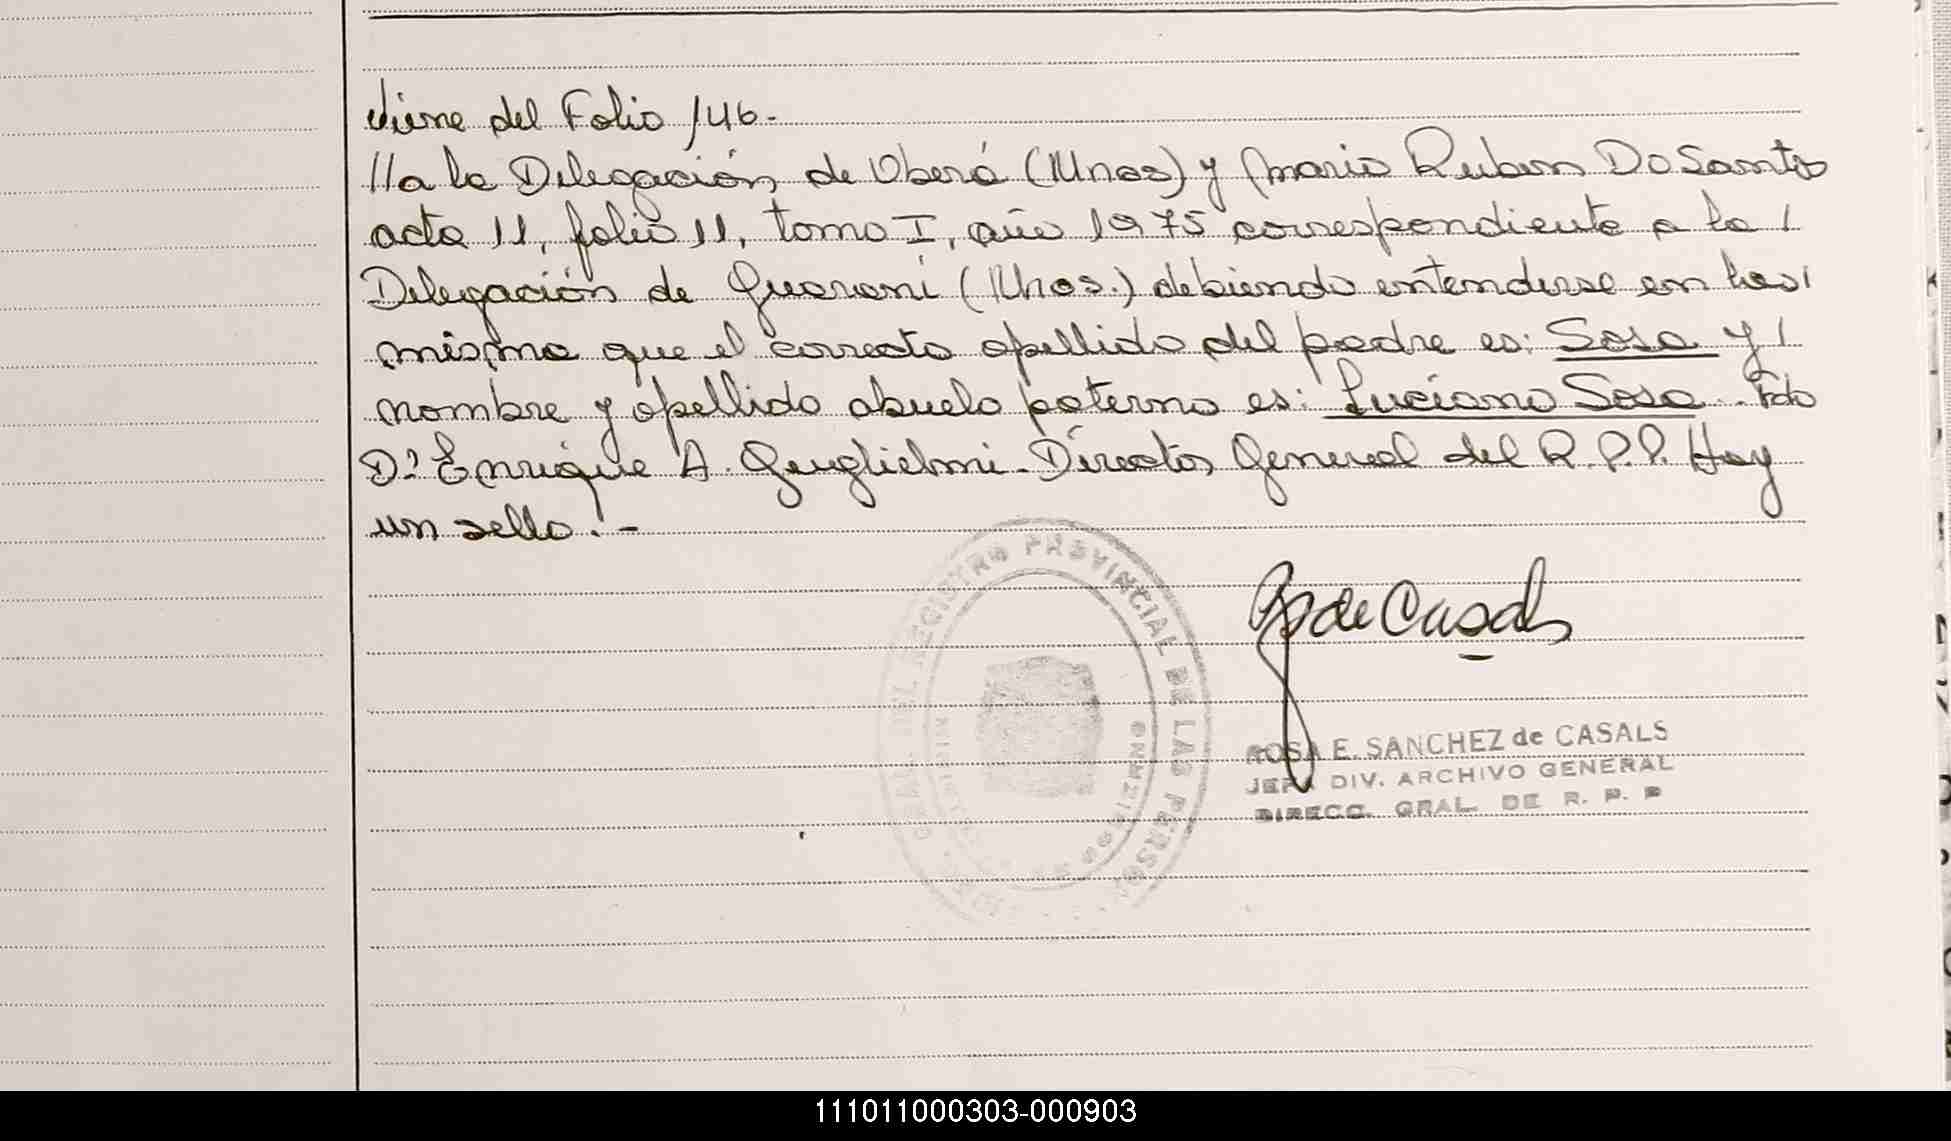 viene del Folio 146.-
//a la Delegación de Oberá (Mnes) y Mario Ruben Do Santos
acta 11, folio 11, tomo I, año 1975 correspondiente a la /
Delegación de Guaraní (Mnes.) debiendo entenderse en las /
misma que el correcto apellido del padre es: Sosa y /
nombre y apellido abuelo paterno es: Luciano Sosa. Fdo
Dr Enrique A. Guglielmi - Director General del R.P.P. Hay
un sello.-
GRAL. DEL REGISTRO PROVINCIAL DE LAS PERSO
MISIONES
RosdeCasals
ROSA E. SANCHEZ de CASALS
JEFA DIV. ARCHIVO GENERAL
DIRECC. GRAL. DE R. P. P
111011000303-000903